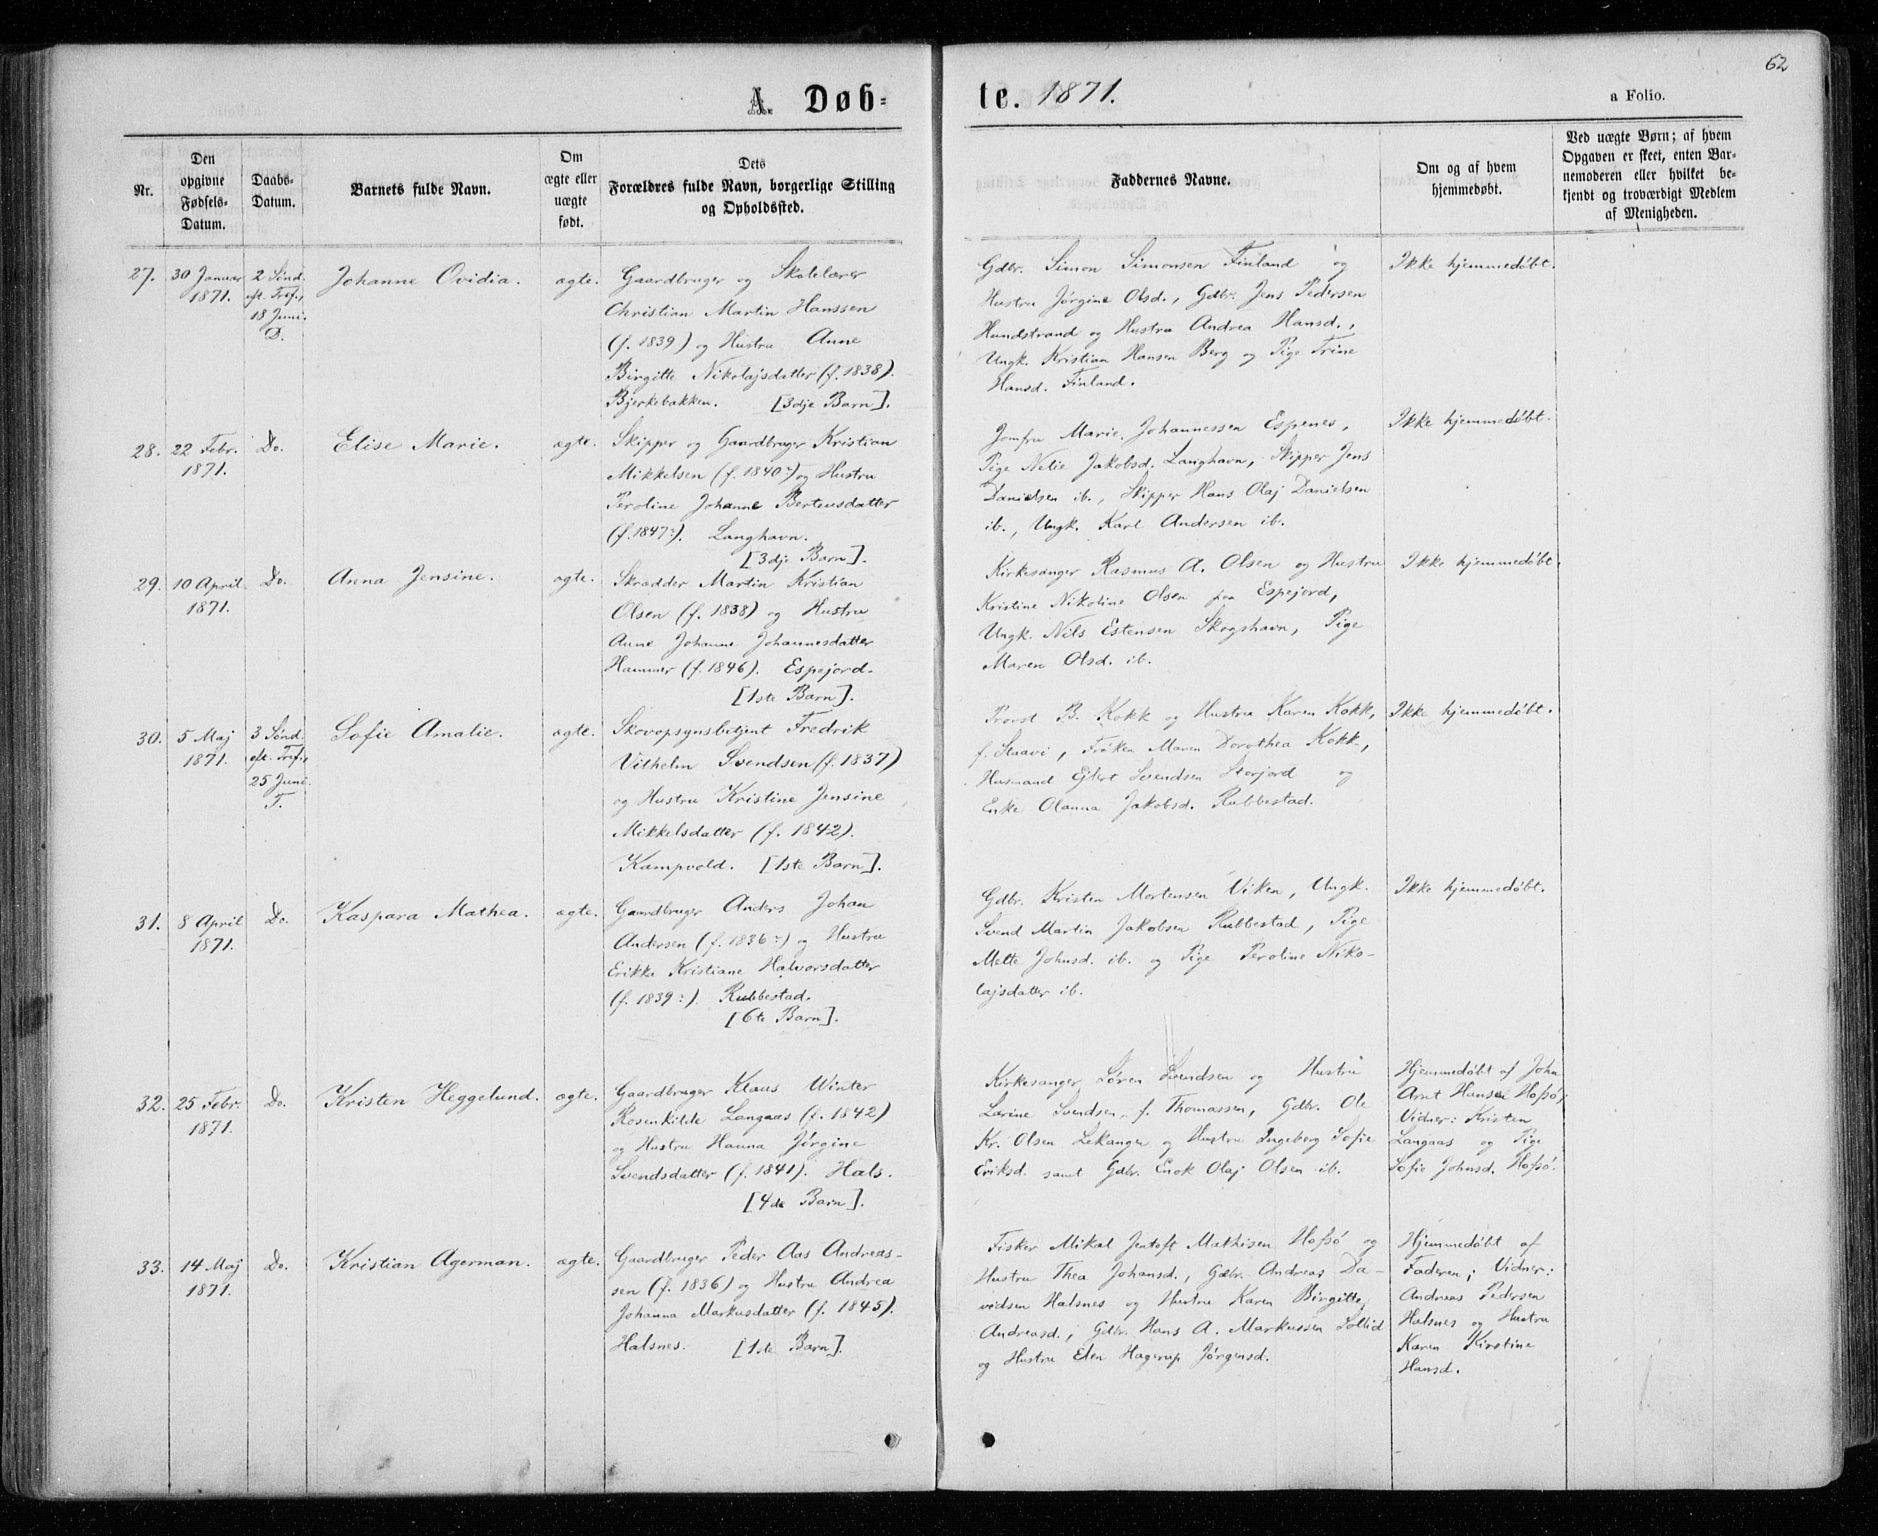 62
A. Døb-
te. 1871.
a Folio.
Nr.
Den
opgivne
Fødsels-
Datum.
Daabs-
Datum.
Barnets fulde Navn.
Om
ægte eller
uægte
født.
Dets
Forældres fulde Navn, borgerlige Stilling
og Opholdssted.
Faddernes Navne.
Om og af hvem
hjemmedøbt.
Ved uægte Børn; af hvem
Opgaven er skeet, enten Bar-
nemoderen eller hvilket be-
kjendt og troværdigt Medlem
af Menigheden.
27.
30 Januar
1871.
2 Sønd.
eft. Tref.,
18 Juni.
D.
Johanne Ovidia.
ægte.
Gaardbruger og Skolelærer
Christian Martin Hanssen
(f. 1839) og Hustru Anne
Birgitte Nikolajsdatter (f. 1838).
Bjerkebakken. [3dje Barn].
Gdbr. Simon Simonsen Finland og
Hustru Jørgine Olsd., Gdbr. Jens Pedersen
Hundstrand og Hustru Andrea Hansd.,
Ungk. Kristian Hansen Berg og Pige Trine
Hansd. Finland.
Ikke hjemmedøbt.
28.
22 Febr.
1871.
Do.
Elise Marie.
ægte.
Skipper og Gaardbruger Kristian
Mikkelsen (f. 1840:) og Hustru
Peroline Johanne Berteusdatter
(f. 1847:). Langhavn.
[3dje Barn].
Jomfru Marie Johannessen Espenes,
Pige Nelie Jakobsd. Langhavn, Skipper Jens
Danielsen ib., Skipper Hans Olaj Danielsen
ib., Ungk. Karl Andersen ib.
Ikke hjemmedøbt.
29.
10 April
1871.
Do.
Anna Jensine.
ægte.
Skrædder Martin Kristian
Olsen (f. 1838) og Hustru
Anne Johanne Johannesdatter
Hammer (f. 1846). Espejord.
[1ste Barn].
Kirkesanger Rasmus A. Olsen og Hustru
Kristine Nikoline Olsen paa Espejord,
Ungk. Nils Estensen Skogshavn, Pige
Maren Olsd. ib.
Ikke hjemmedøbt.
30.
5 Maj
1871.
3 Sønd.
eft. Tref.,
25 Juni.
T.
Sofie Amalie.
ægte.
Skovopsynsbetjent Fredrik
Vilhelm Svendsen (f. 1837)
og Hustru Kristine Jensine
Mikkelsdatter (f. 1842).
Kampvold. [1ste Barn].
Provst B. Kokk og Hustru Karen Kokk,
f. Staavi, Frøken Maren Dorothea Kokk,
Husmand Ejlert Svendsen Storjord og
Enke Olanna Jakobsd. Rubbestad.
Ikke hjemmedøbt.
31.
8 April
1871.
Do.
Kaspara Mathea.
ægte.
Gaardbruger Anders Johan
Andersen (f. 1836:) og Hustru
Erikka Kristiane Halvorsdatter
(f. 1839:). Rubbestad.
[6te Barn].
Gdbr. Kristen Mortensen Viken, Ungk.
Svend Martin Jakobsen Rubbestad, Pige
Mette Johnsd. ib. og Pige Peroline Niko-
lajsdatter ib.
Ikke hjemmedøbt.
32.
25 Febr.
1871.
Do.
Kristen Heggelund.
ægte.
Gaardbruger Klaus Winter
Rosenkilde Langaas (f. 1842)
og Hustru Hanna Jørgine
Svendsdatter (f. 1841). Hals.
[4de Barn].
Kirkesanger Søren Svendsen og Hustru
Lerine Svendsen, f. Thomassen, Gdbr. Ole
Kr. Olsen Lekangen og Hustru Ingeborg Sofie
Eriksd. samt Gdbr. Enok Olaj Olsen ib.
Hjemmedøbt af John
Arnt Hansen Hofsö,
Vidner: Kristen
Langaas og Pige
Sofie Johnsd. Hofsö.
33.
14 Maj
1871.
Do.
Kristian Agerman.
ægte.
Gaardbruger Peder Aas Andreas-
sen (f. 1836) og Hustru Andrea
Johanna Markusdatter (f. 1845).
Halsnes. [1ste Barn].
Fisker Mikal Jentoft Mathisen Hofsö og
Hustru Thea Johansd., Gdbr. Andreas Da-
vidsen Halsnes og Hustru Karen Birgitte
Andreasd., Gdbr. Hans A. Markussen Sollid
og Hustru Elen Hagerup Jørgensd.
Hjemmedøbt af
Faderen; Vidner:
Andreas Pedersen
Halsnes og Hustru
Karen Kirstine
Hansd.